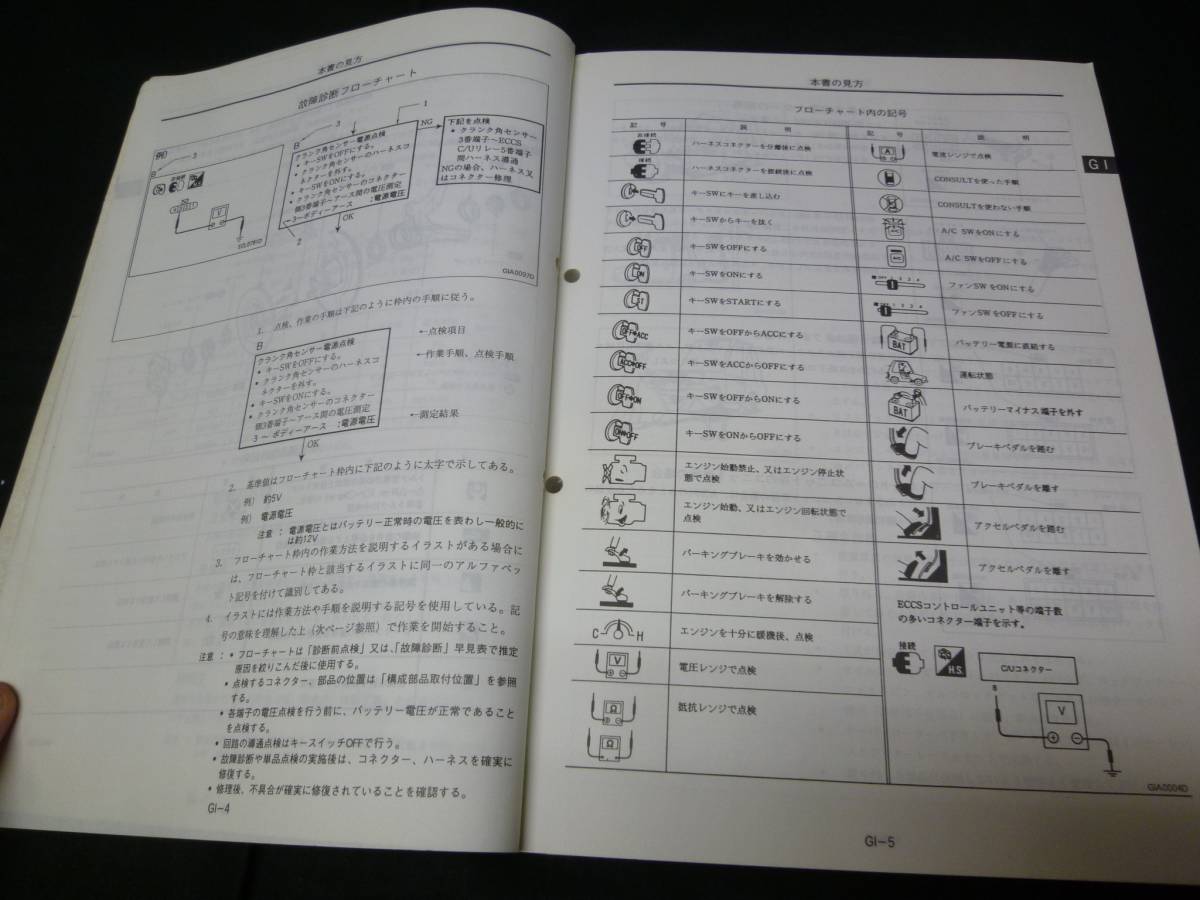 本書の見方
故障診断フローチャート
例)
3
B
SEL078D
3
1
B
クランク角センサー電源点検
• キーSWをOFFにする。
• クランク角センサーのハーネスコ
ネクターを外す。
• キーSWをONにする。
• クランク角センサーのコネクター
側3番端子〜アース間の電圧測定
3〜ボディーアース :電源電圧
NG
下記を点検
• クランク角センサー
3番端子〜ECCS
C/Uリレー5番端子
間ハーネス導通
NGの場合、ハーネス又
はコネクター修理
OK
2
GIA0097D
1. 点検、作業の手順は下記のように枠内の手順に従う。
B
クランク角センサー電源点検
• キーSWをOFFにする。
• クランク角センサーのハーネスコ
ネクターを外す。
• キーSWをONにする。
• クランク角センサーのコネクター
側3番端子〜アース間の電圧測定
3 〜 ボディーアース :電源電圧
←点検項目
←作業手順、点検手順
←測定結果
OK
2. 基準値はフローチャート枠内に下記のように太字で示してある。
例) 約5V
例) 電源電圧
注意 : 電源電圧とはバッテリー正常時の電圧を表わし一般的に
は約12V
3. フローチャート枠内の作業方法を説明するイラストがある場合に
は、フローチャート枠と該当するイラストに同一のアルファベッ
ト記号を付けて識別してある。
4. イラストには作業方法や手順を説明する記号を使用している。記
号の意味を理解した上（次ページ参照）で作業を開始すること。
注意 : • フローチャートは「診断前点検」又は、「故障診断」早見表で推定
原因を絞りこんだ後に使用する。
• 点検するコネクター、部品の位置は「構成部品取付位置」を参照
する。
• 各端子の電圧点検を行う前に、バッテリー電圧が正常であること
を点検する。
• 回路の導通点検はキースイッチOFFで行う。
• 故障診断や単品点検の実施後は、コネクター、ハーネスを確実に
修復する。
• 修理後、不具合が確実に修復されていることを確認する。
GI−4
本書の見方
フローチャート内の記号
GI
記 号 説 明 記 号 説 明
非接続 ハーネスコネクターを分離後に点検
接続 ハーネスコネクターを接続後に点検
キーSWにキーを差し込む
キーSWからキーを抜く
OFF キーSWをOFFにする
ON キーSWをONにする
ST キーSWをSTARTにする
OFF➔ACC キーSWをOFFからACCにする
ACC➔OFF キーSWをACCからOFFにする
OFF➔ON キーSWをOFFからONにする
ON➔OFF キーSWをONからOFFにする
エンジン始動禁止、又はエンジン停止状
態で点検
エンジン始動、又はエンジン回転状態で
点検
パーキングブレーキを効かせる
パーキングブレーキを解除する
C H エンジンを十分に暖機後、点検
V 電圧レンジで点検
Ω 抵抗レンジで点検
Ω
A 電流レンジで点検
CONSULTを使った手順
CONSULTを使わない手順
A/C SWをONにする
A/C A/C SWをOFFにする
OFF 1 2 3 4 ファンSWをONにする
OFF 1 2 3 4 ファンSWをOFFにする
BAT バッテリー電盤に直結する
運転状態
BAT バッテリーマイナス端子を外す
ブレーキペダルを踏む
ブレーキペダルを離す
アクセルペダルを踏む
アクセルペダルを離す
ECCSコントロールユニット等の端子数
の多いコネクター端子を示す。
接続
H.S.
C/Uコネクター
8
V
GIA0004D
GI−5